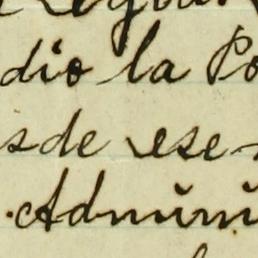 dio la Po
sde ese
Admini